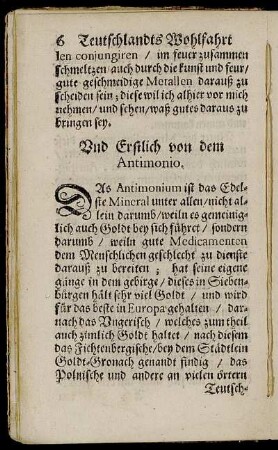 6 Teutschlandts Wohlfahrt
len conjungiren / im feuer zusammen
schmeltzen auch durch die kunst und feur/
gute geschmeidige Metallen darauß zu
scheiden sein; diese wil ich alhier vor mich
nehmen / und sehen/waß gutes daraus zu
bringen sey.
Vnd Erstlich von dem
Antimonio.
DAs Antimonium ist das Edel-
ste Mineral unter allen/nicht al-
lein darumb/weiln es gemeinig-
lich auch Goldt bey sich führet / sondern
darumb / weiln gute Medicamenten
dem Menschlichen geschlecht zu dienste
darauß zu bereiten ; hat seine eigene
gänge in dem gebirge / dieses in Sieben-
bürgen hält sehr viel Goldt / und wird
für das beste in Europa gehalten / dar-
nach das Vngerisch / welches zum theil
auch zimlich Goldt haltet / nach diesem
das Fichtenbergische/bey dem Städtlein
Goldt-Gronach genandt findig / das
Polnische und andere an vielen örtern
Teutsch-